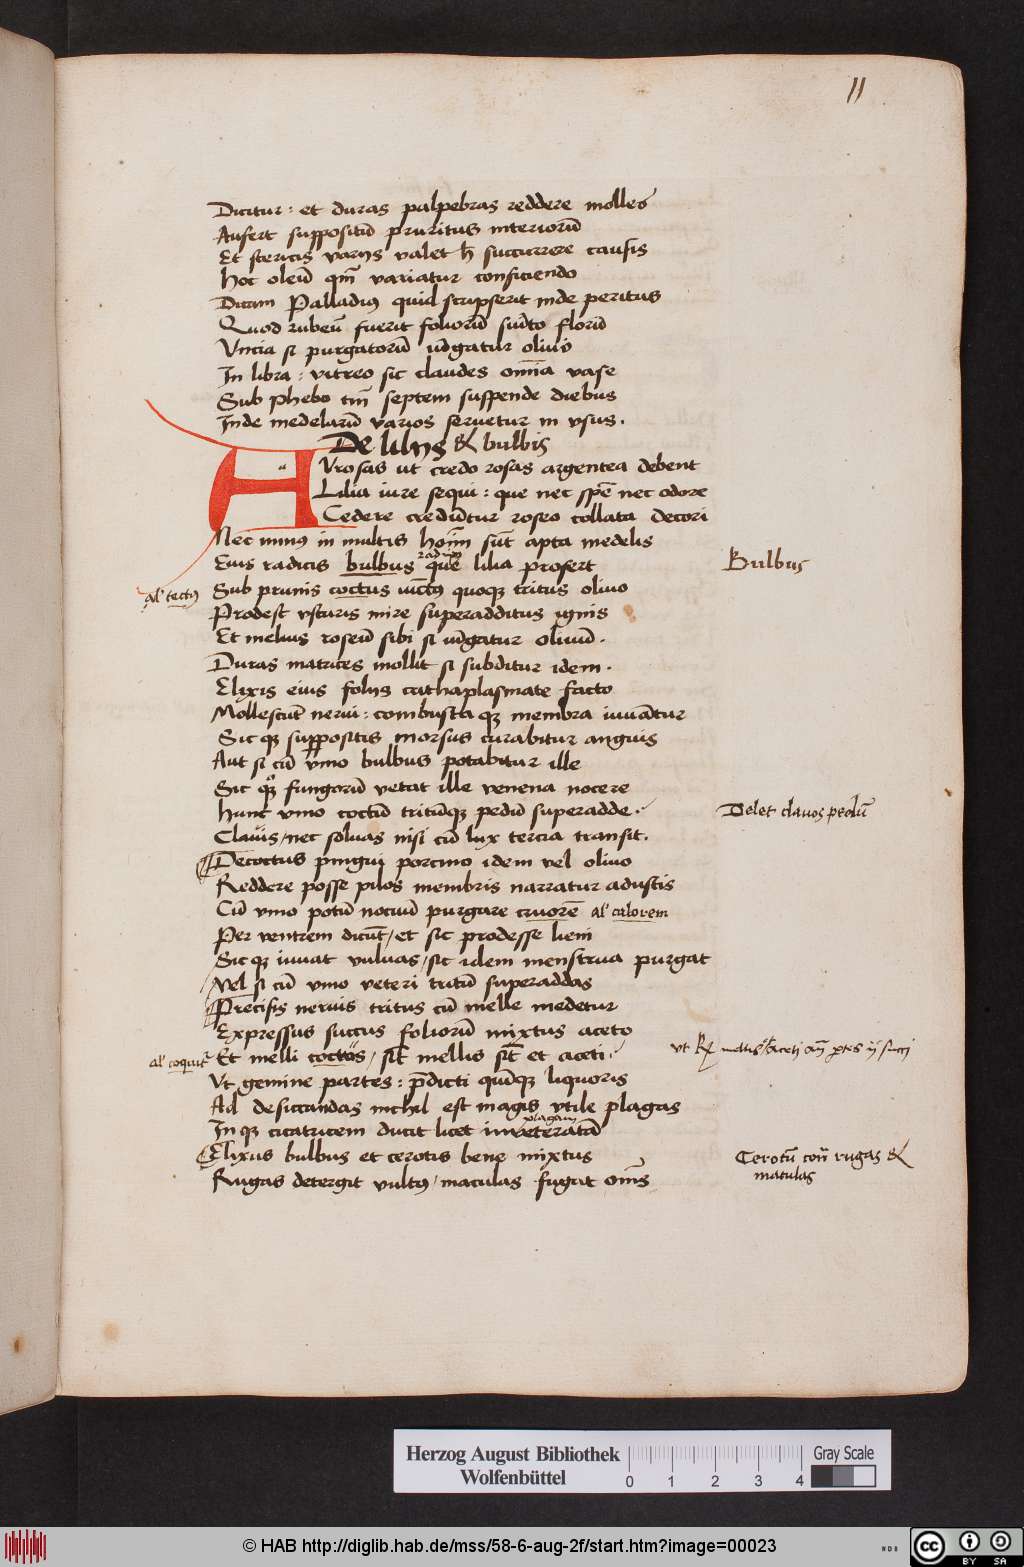 11
Dicitur: et duras palpebras reddere molles
Aufert suppositū pruritus interiorū
Et stericis varijs valet h̄ succurrere causis
Hoc oleū qm̄ variatur conficiendo
Dicam Palladiꝰ quid scripserit inde peritus
Quod rubeū fuerit foliorū sūito florū
Vncia si purgatorū iūgatur oliuis
In libra: vitreo sic claudes om̄ia vase
Sub phebo tm̄ septem suspende diebus
Inde medelarū varios seruetur in vsus.
De lilijs & bulbis
AVrosas ut credo rosas argentea debent
Lilia iure sequi: que nec spē nec odore
Cedere credūtur roseo collata decori
Nec minꝰ in multis hoīm sūt apta medelis
radicem
Eius radicis bulbus quē lilia profert
Bulbus
Sub prunis coctus iūctꝰ quoqꝫ tritus oliuo
al' tectꝰ
Prodest vsturis mire superadditus ignis
Et melius roseū sibi si iūgatur oliuū.
Duras matrices mollit si subditur idem.
Elixis eius folijs cathaplasmate facto
Mollescūt nerui: combusta qꝫ membra iuuātur
Sic qꝫ suppositis morsus curabitur anguis
Aut si cū vino bulbus potabitur ille
Sic qꝫ fungorū vetat ille venena nocere
Hunc vino coctū tritūqꝫ pedū superadde.
Delet clauos pedū
Clauis/nec soluas nisi cū lux tercia transit.
Decoctus pingui porcino idem vel oliuo
Reddere posse pilos membris narratur adustis
Cū vino potū nociuū purgare cruorē al' calorem
Per ventrem dicūt/et sic prodesse lieni
Sic qꝫ iuuat vuluas/sic idem menstrua purgat
Vel si cū vino veteri tritū superaddas
Precisis neruis tritus cū melle medetur
Expressus succus foliorū mixtus aceto
Et melli coctus/sit mellis sit et aceti
al' coquit̄
Vt gemine partes: p̄dicti quīqꝫ liquoris
Ad desiccandas nichil est magis vtile plagas
plagam
In qꝫ cicatricem ducit licet inueteratā
Elixus bulbus et cerotis bene mixtus
Cerotū con̄ rugas &
maculas
Rugas detergit vultꝰ/maculas fugat om̄s
Herzog August Bibliothek
Wolfenbüttel
0 1 2 3 4
Gray Scale
© HAB http://diglib.hab.de/mss/58-6-aug-2f/start.htm?image=00023
cc BY SA